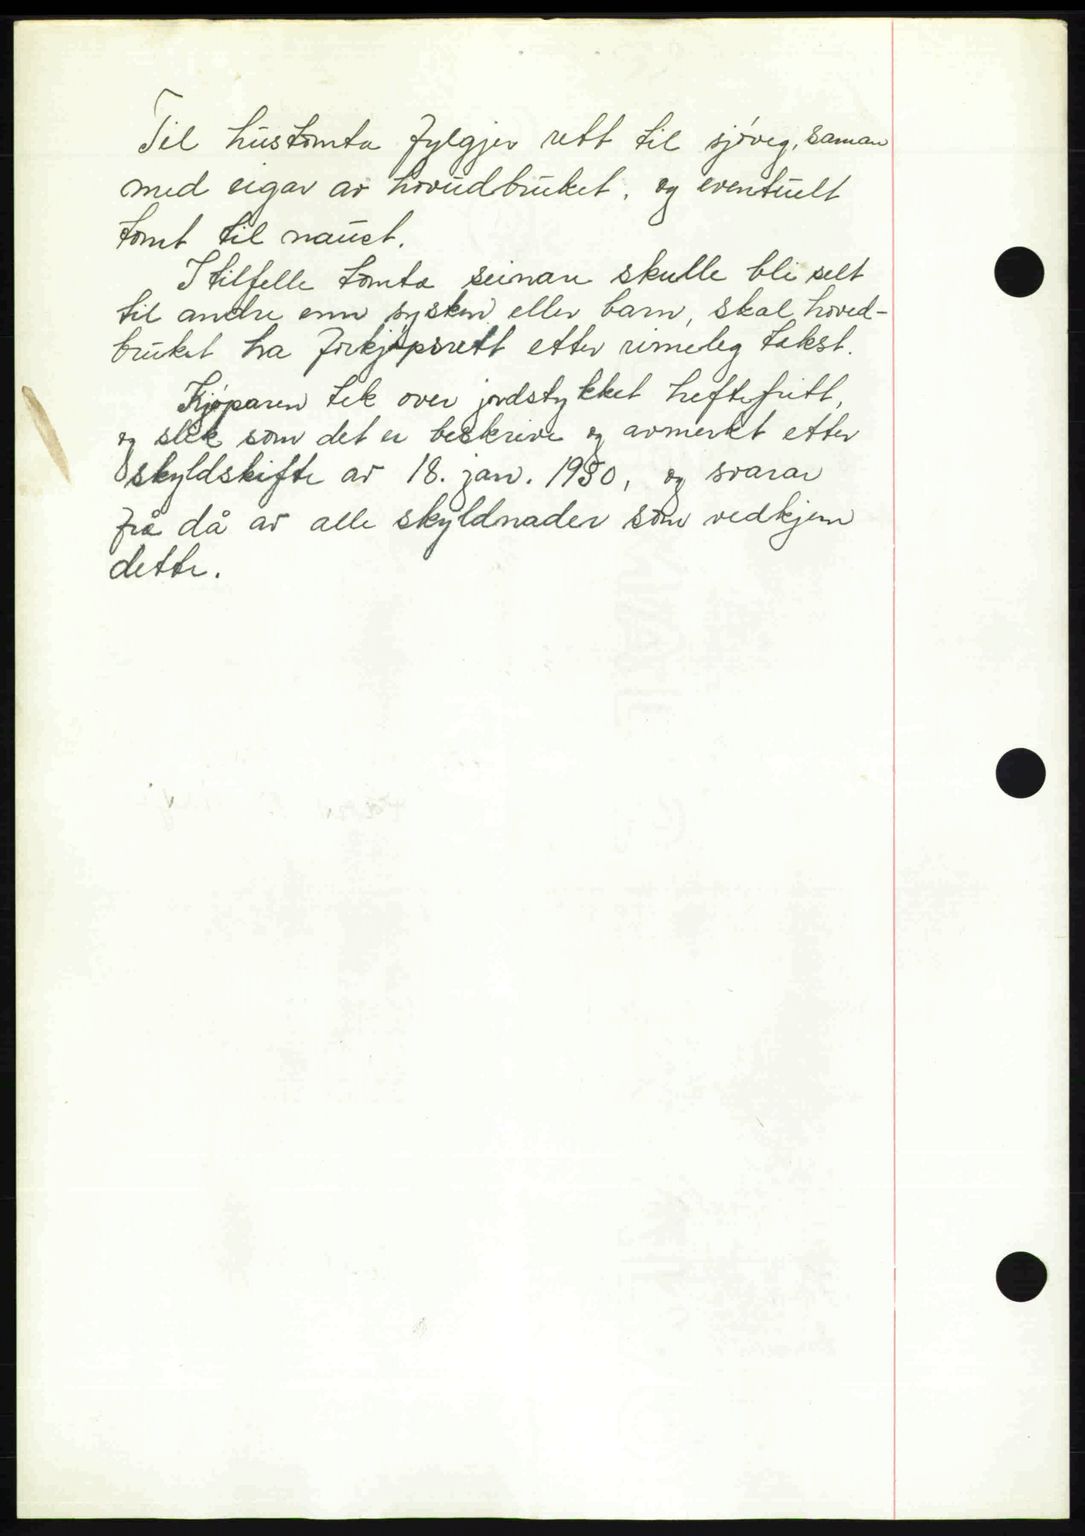 Til hustomta fylgjer rett til sjøveg, saman
med eigar av hovudbruket, og eventuelt
tomt til naust.
I tilfelle tomta seinare skulle bli selt
til andre enn sysken eller barn, skal hoved-
bruket ha forkjøpsrett etter rimeleg takst.
Kjøparen tek over jordstykket heftefritt,
og slik som det er beskrive og avmerkt etter
skyldskifte av 18. jan. 1950, og svarar
frå då av alle skyldnader som vedkjem
dette.